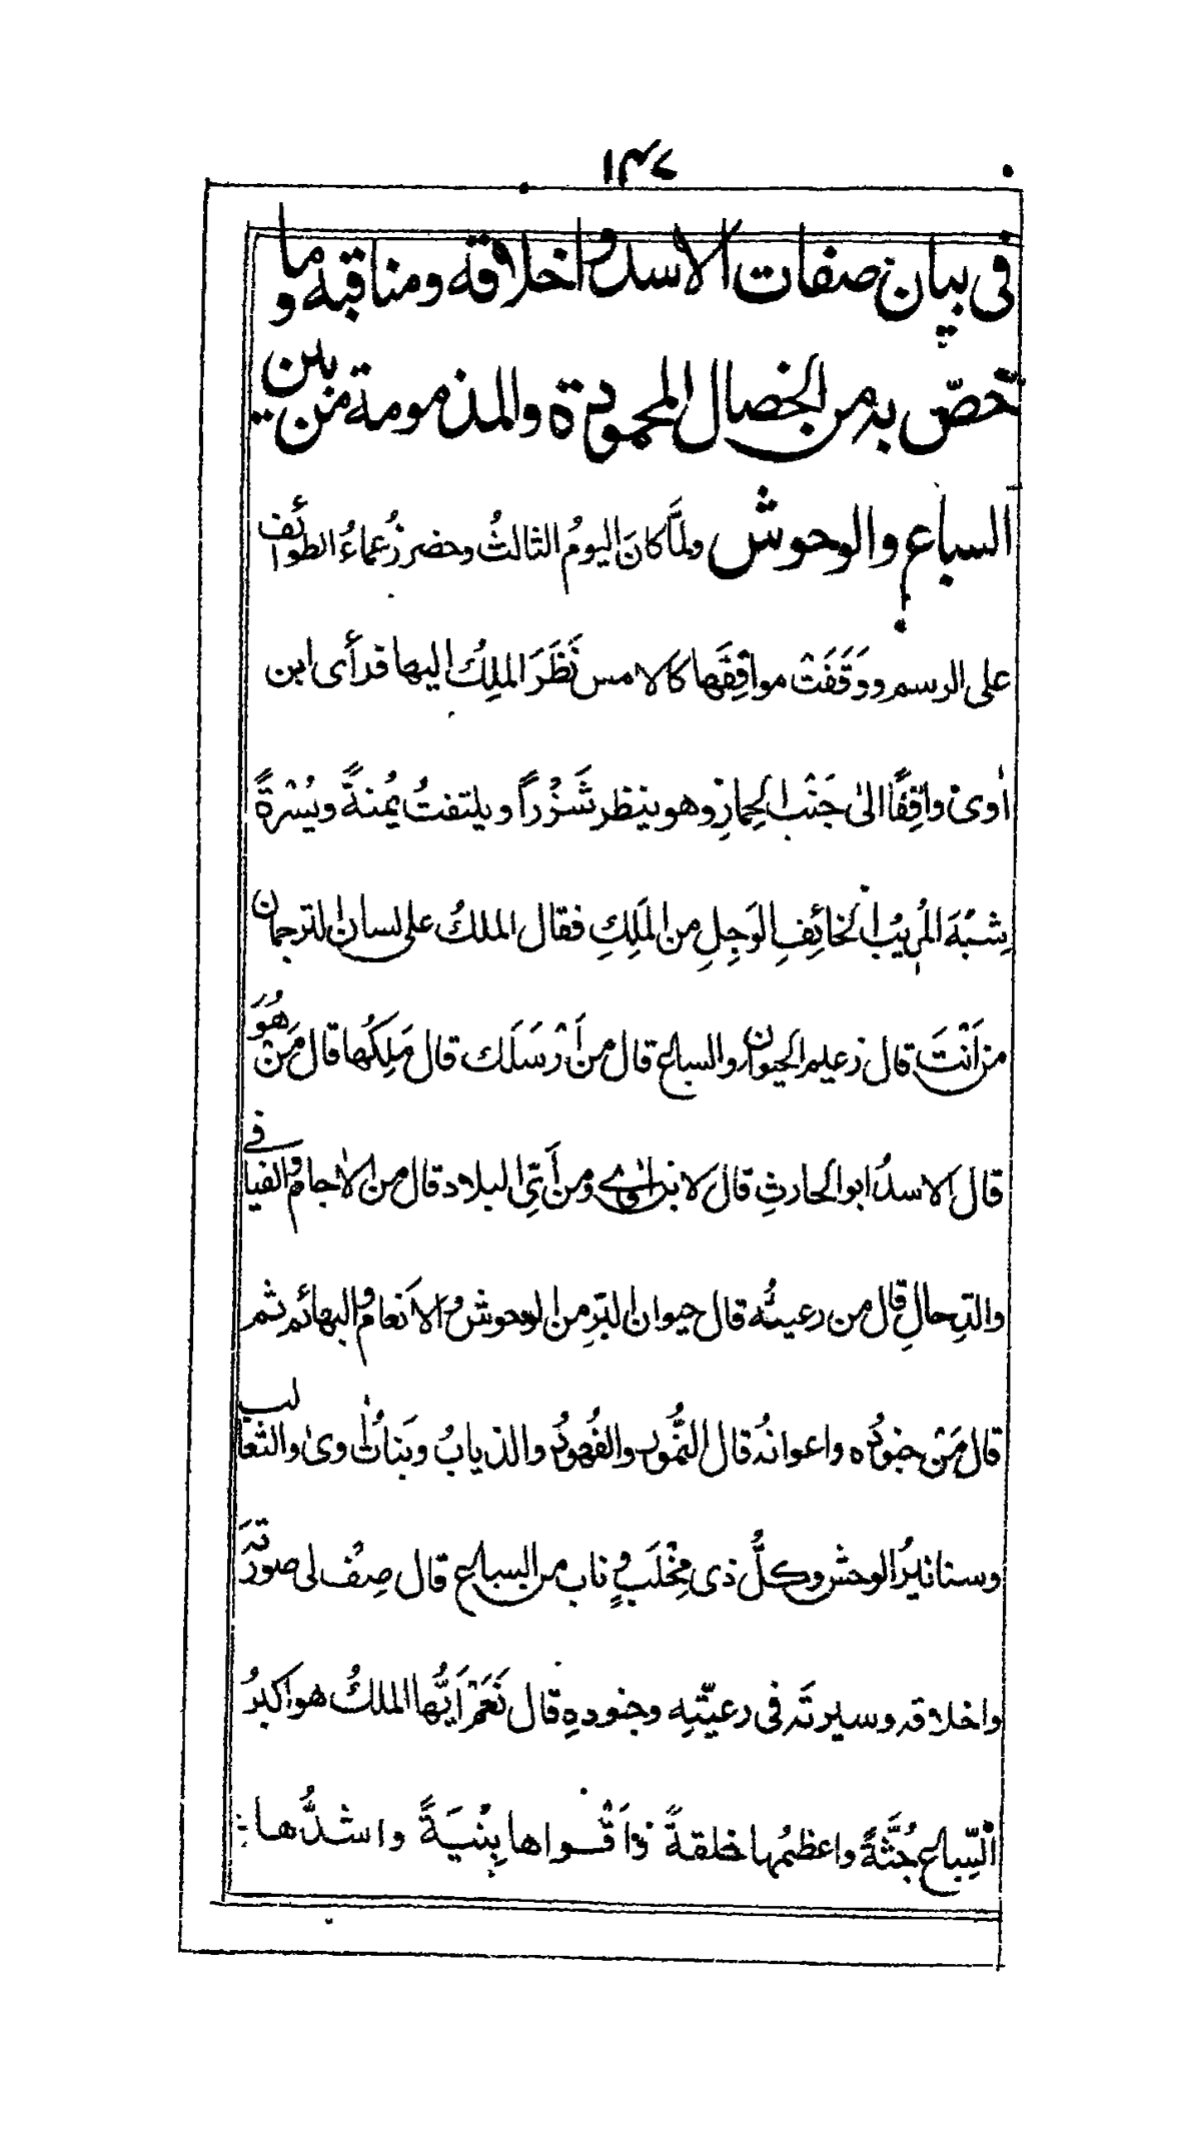 ۱۴۷
فى بيان صفات الاسد واخلاقه ومناقبه وما
تخصّ به من الخصال المحمودة والمذمومة من بين
السباع والوحوش ولمَّا كانَ اليومُ الثالثُ وحضر زُعماءُ الطوائف
على الرسم ووَقَفَتْ مواقِفَها كالامس نَظَرَ الملِكُ اليها فرأى ابن
اٰوىٰ واقِفًا الىٰ جَنْب الحِمارِ وهو ينظر شَزْراً ويلتفتُ يُمنةً ويُسْرةً
شِبْهَ المُرِيْبِ الخائِفِ الوَجِلِ من المَلِكِ فقال الملكُ على لسان الترجمان
من اَنْتَ قال زعيم الحيوان والسباع قال من اَرْسَلَك قال مَلِكُها قال مَنْ هُوَ
قال الاسدُ ابو الحارثِ قال لابن اٰوى ومن اَىّ البلاد قال من الاٰجام والفيافى
والدِحالِ قال من رعيتُه قال حيوان البَرِّ من الوحوش والاَنعام والبهائم ثم
قال مَنْ جنودُه واعوانُه قال النُّمُور والفُهُودُ والذيابُ وبَنَاتُ اٰوىٰ والثعالب
وسنانيرُ الوحش وكلُّ ذى مِخْلَبٍ وناب من السباع قال صِف لى صورتَه
واخلاقه وسيرتَه فى رعيّتِه وجنودهِ قال نَعَمْ اَيُّها الملكُ هو اكبرُ
السِّباع جُثَّةً واعظمُها خلقةً واَقْواها بِنْيَةً واشدُّها